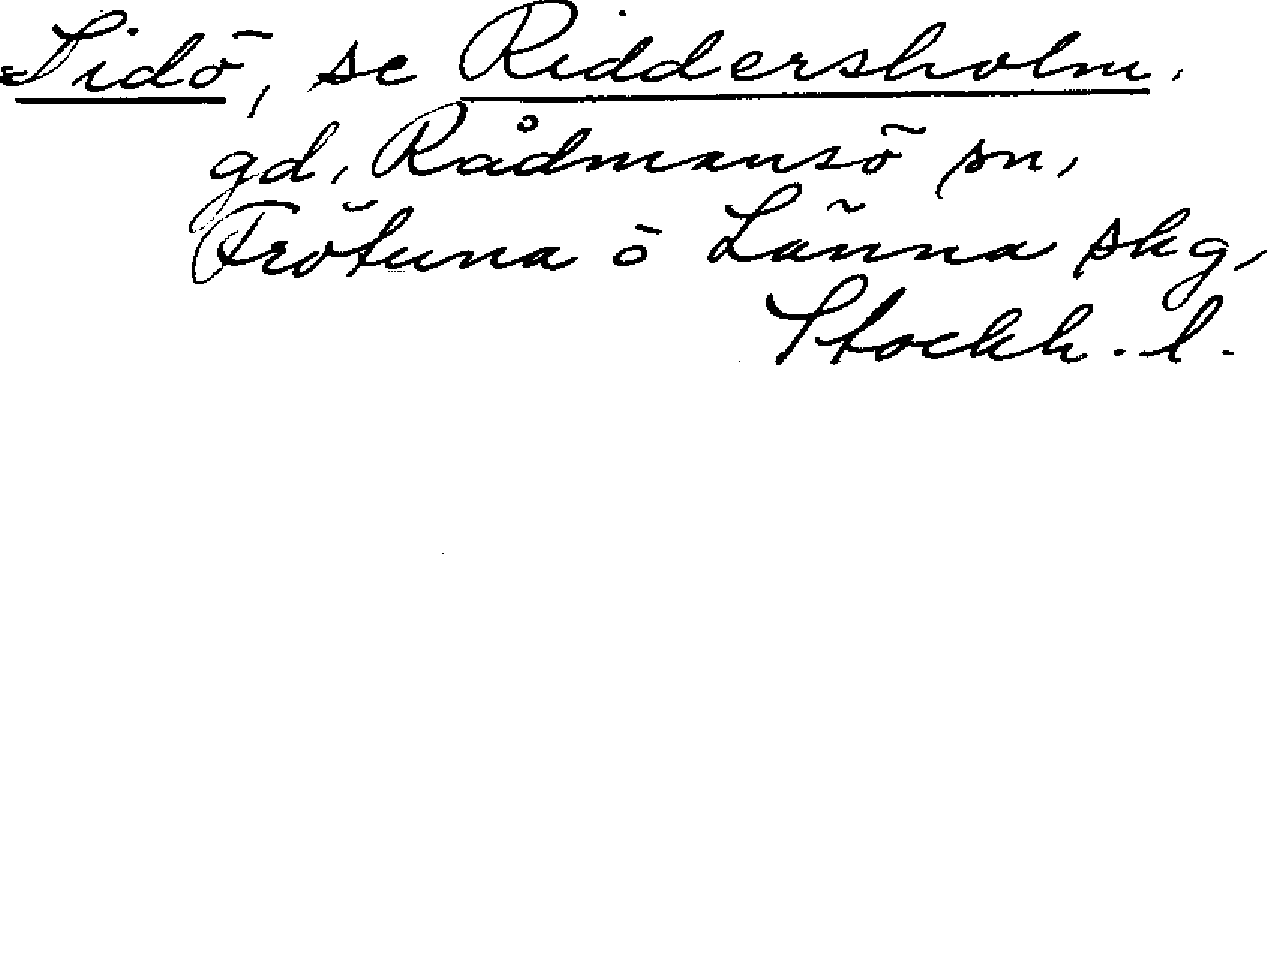 Lidö, se Riddersholm,
gd, Rådmansö sn,
Frötuna o Länna skg,
Stockh. l.